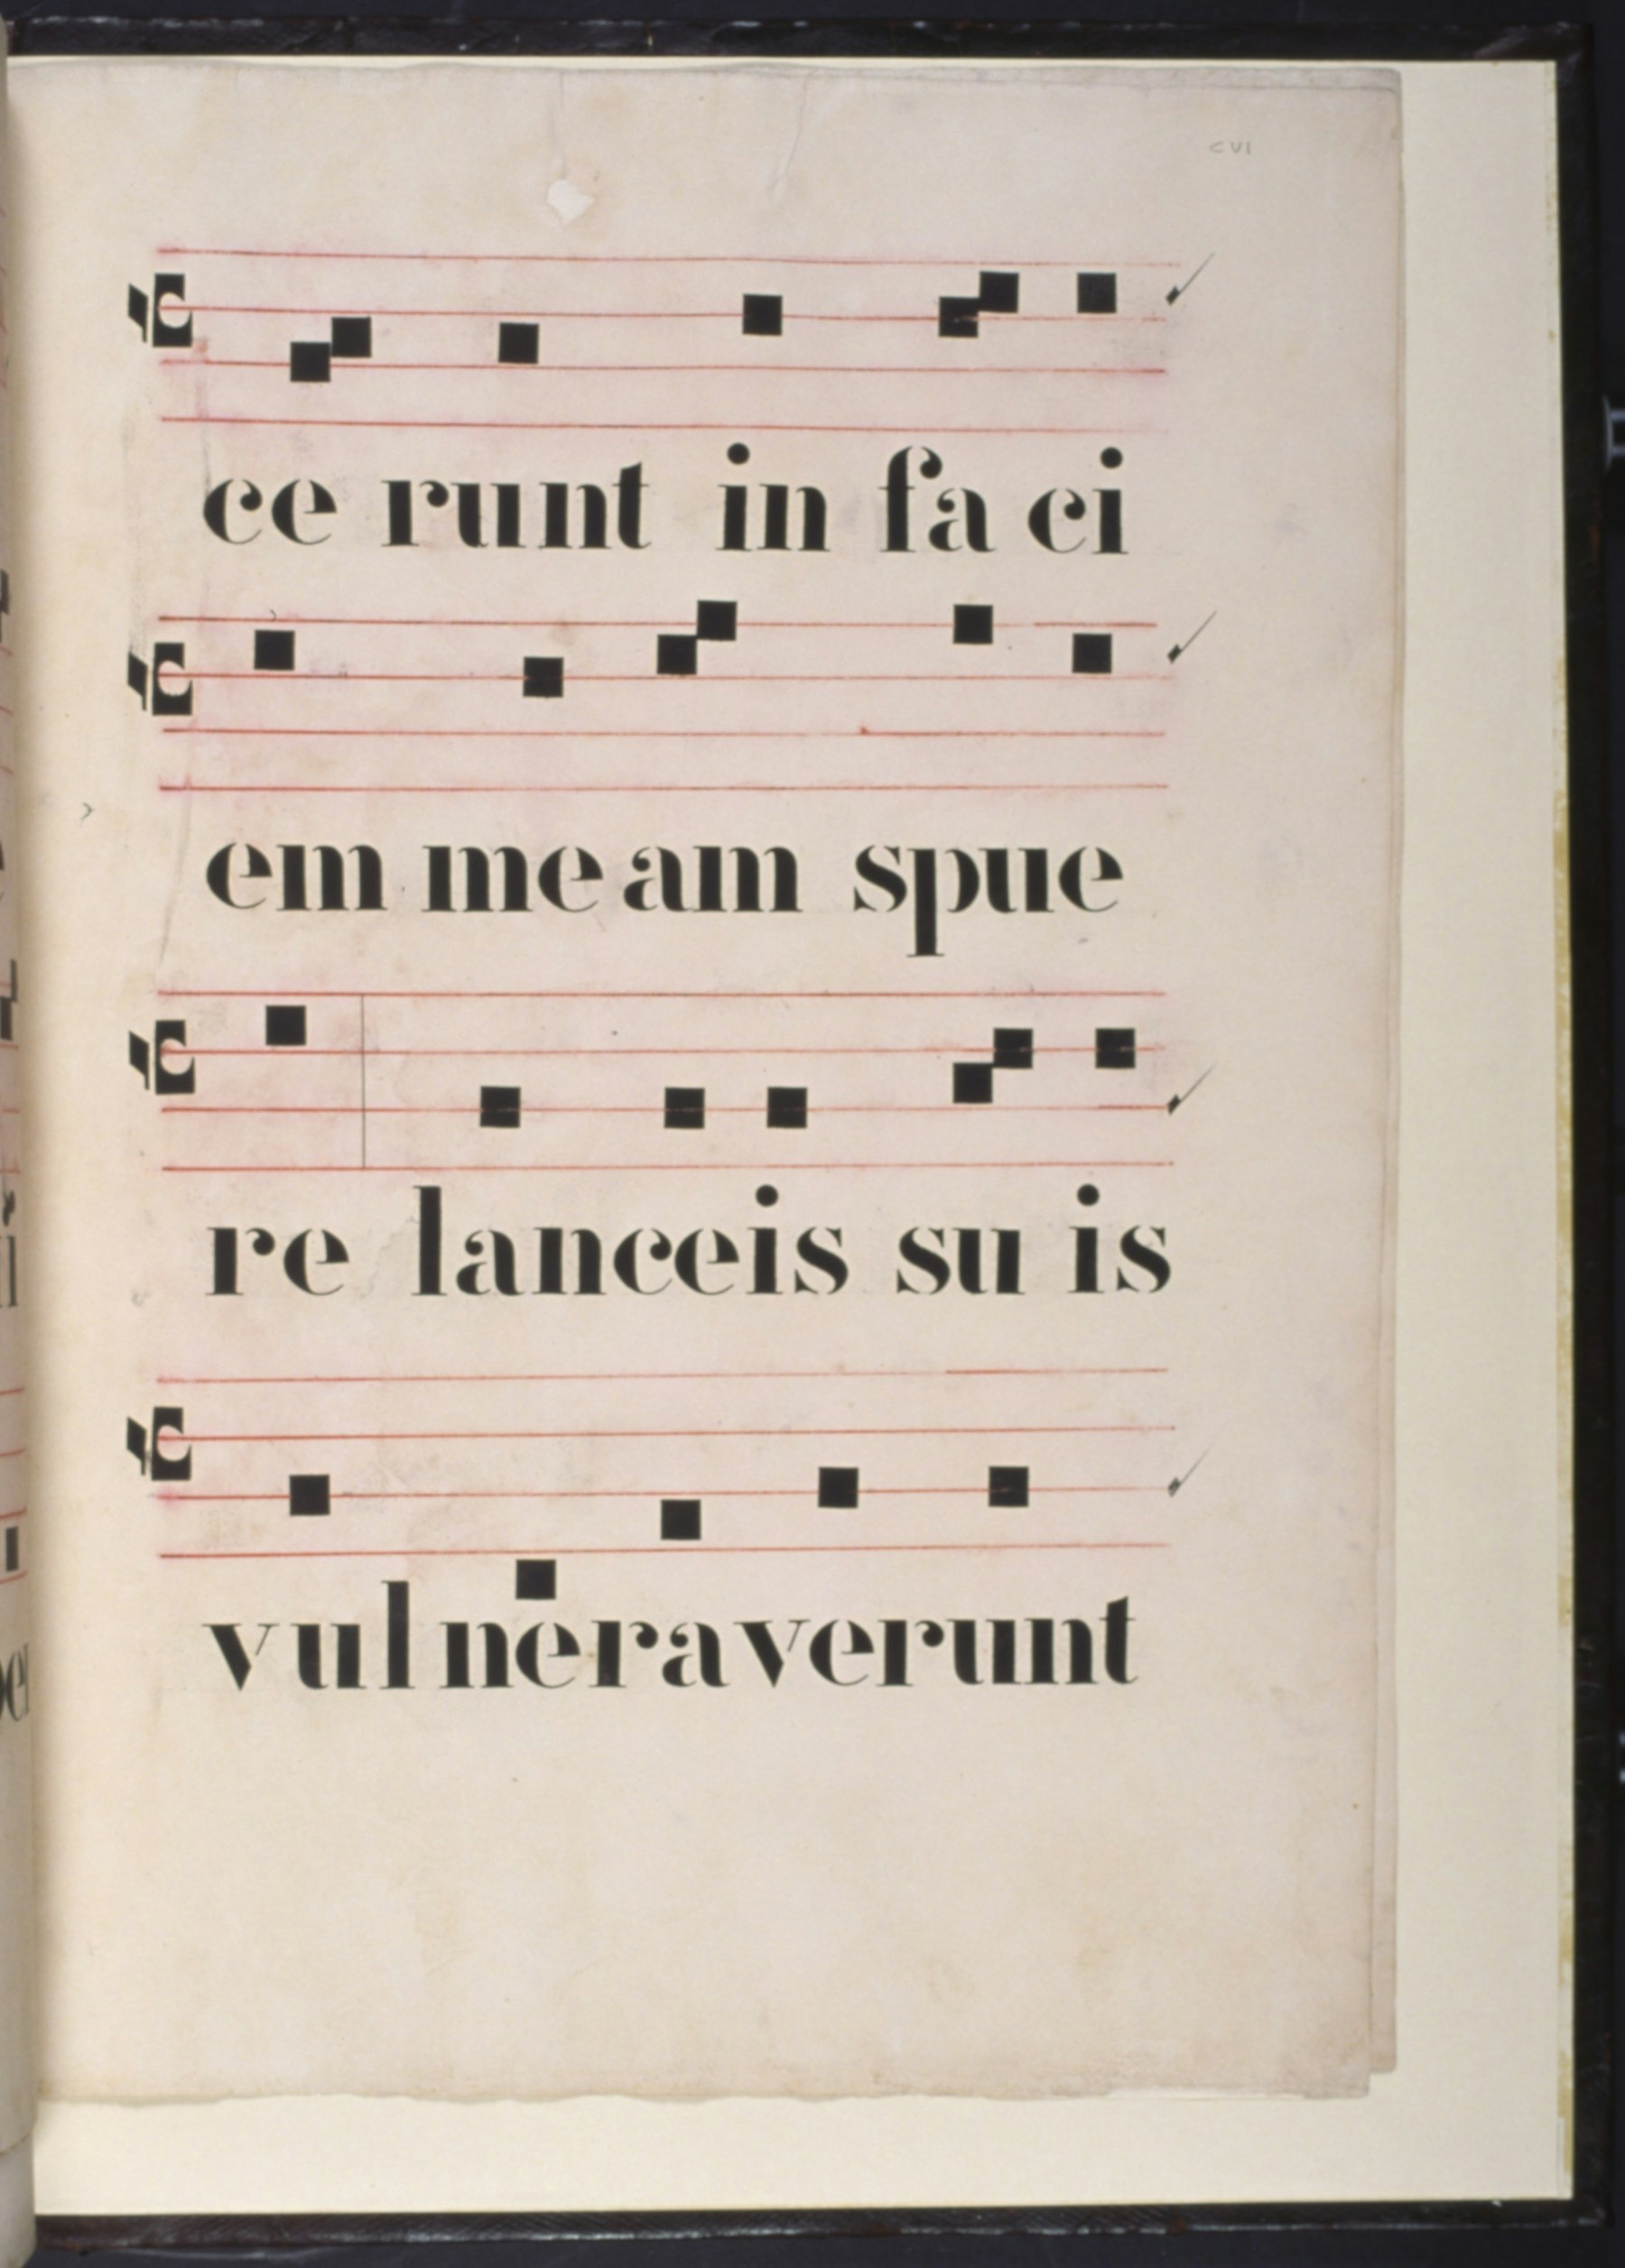 CVI
ce runt in fa ci
em me am spue
re lanceis su is
vul neraverunt